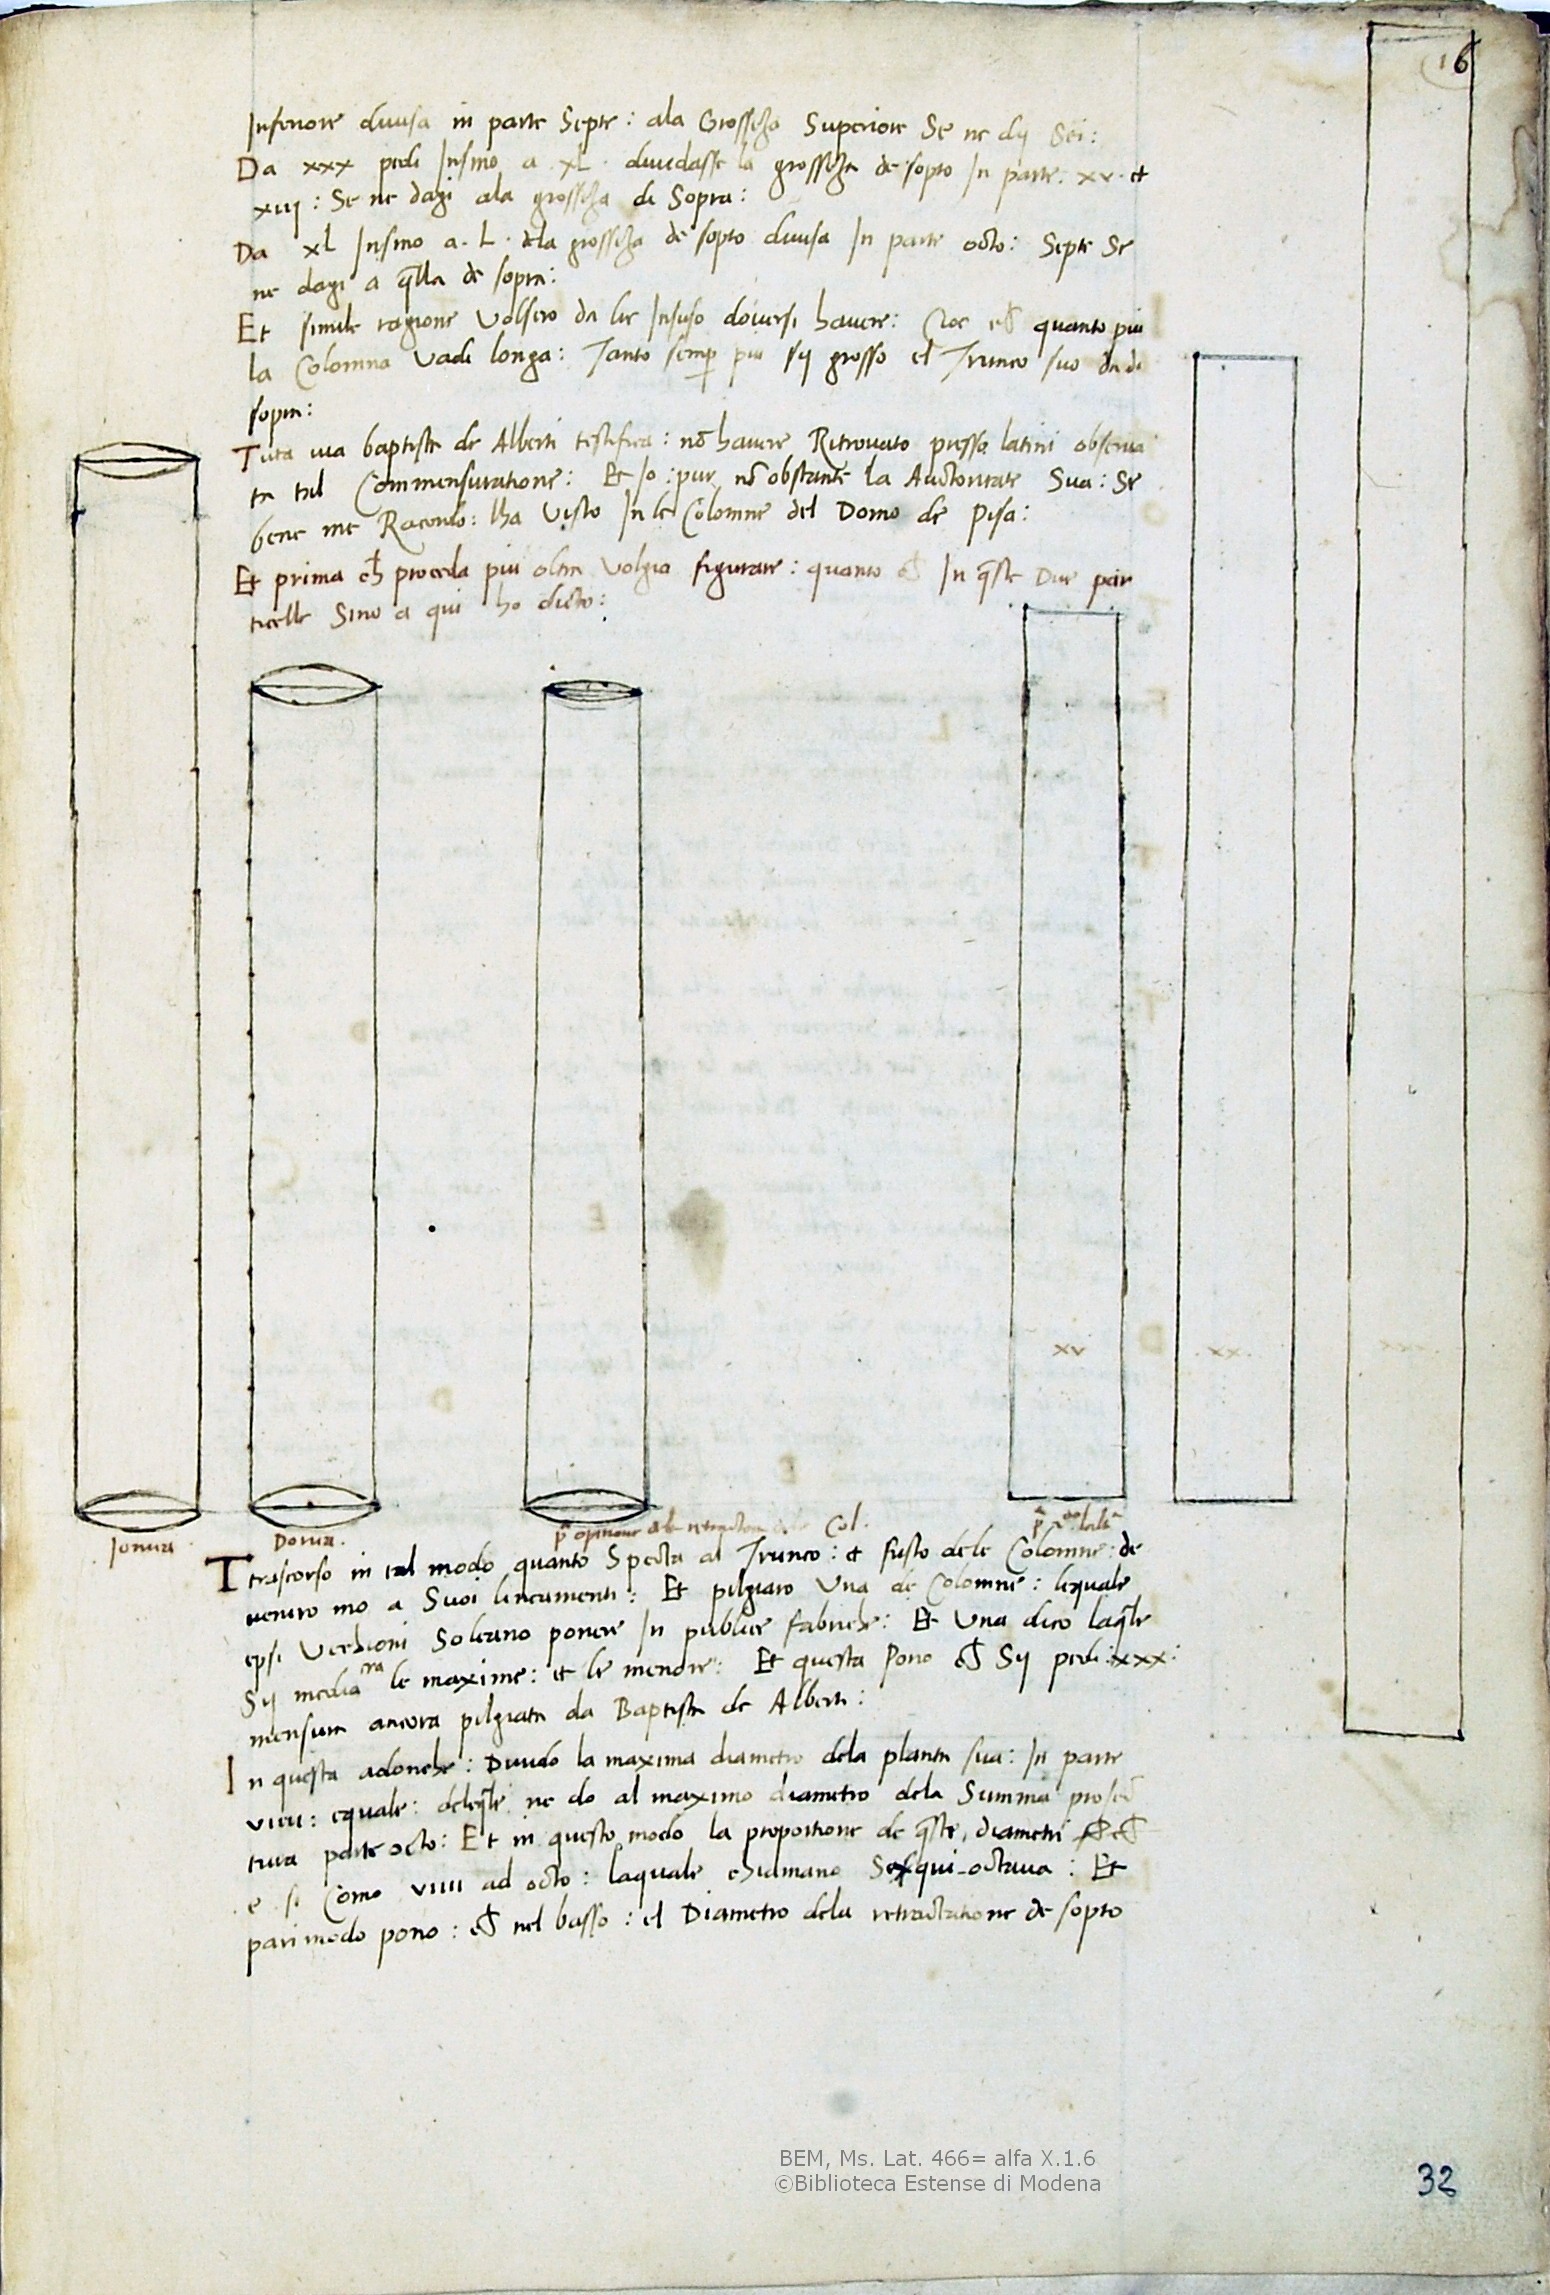 16
Inferiore diuisa in parte Septe: ala Grosseza Superiore Se ne dij Sei:
Da xxx pedi Insino a xL. diuidasse la grosseza de sopto In parte. xv. et
xiij: Se ne dagi ala grosseza di Sopra:
Da xL Insino a. L. dela grosseza de sopto diuisa In parte octo: Septe Se
ne dagi a q̃lla de sopra:
Et simile ragione Volsero da lie Insuso douersi hauere: Cioe ch̃ quanto piu
la Colomna Vadi longa: Tanto semp̱ piu sij grosso el Trunco suo da di
sopra:
Tuta uia baptista de Alberti testifica: nõ hauere Ritrouato presso latini obserua
ta tal Commensuratione: Et Io: pur nõ obstante la Auctoritate Sua: Se
bene me Racordo: lha Visto In le Colomne del Domo de Pisa:
Et prima ch̃ proceda piu oltra Volgio figurare: quanto ch̃ In q̃ste Due par
ticelle Sino a qui ho dicto:
xv
.xx.
xxx.
Ionica.
Dorica.
pª opinione de le retractione dele Col.
Trascorso in tal modo quanto Specta al Trunco: et fusto dele Colomne: de
ueniro mo a Suoi lineamenti: Et pilgiaro Una de Colomne: lequale
epsi Vechioni Soleano ponere In publice fabriche: Et Una dico laq̃le
Sij media tra le maxime: et le menore: Et questa Pono ch̃ Sij pedi: xxx:
mensura ancora pilgiata da Baptista de Alberti:
In questa adonche: Diuido la maxima diametro dela planta sua: In parte
viiii: equale: deleq̃le ne do al maximo diametro dela Summa proiec̃
tura parte octo: Et in questo modo la proportione de q̃ste diametri ch̃
e. si Como viiii ad octo: laquale chiamano Sesqui-octaua: Et
pari modo pono: ch̃ nel basso: el Diametro dela retractatione de sopto
BEM, Ms. Lat. 466= alfa X.1.6
©Biblioteca Estense di Modena
32